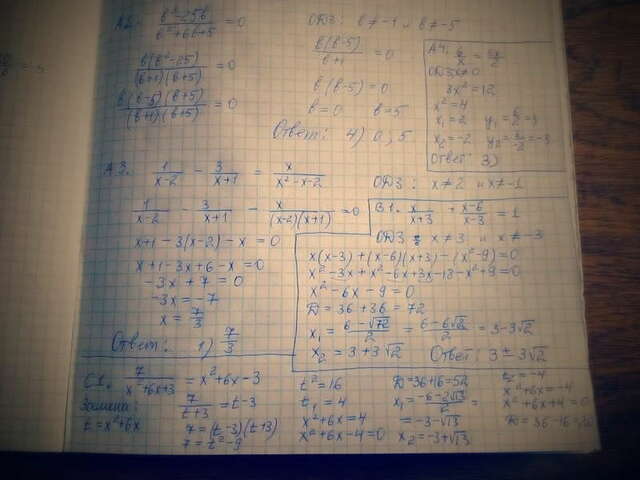 А2. (в³-25в)/(в²+6в+5) = 0
ОДЗ: в ≠ -1 и в ≠ -5
в(в²-25)/((в+1)(в+5)) = 0
в(в-5)(в+5)/((в+1)(в+5)) = 0
в(в-5)/(в+1) = 0
в(в-5) = 0
в=0 в=5
Ответ: 4) 0, 5
А4. 6/x = 3x/2
ОДЗ x≠0
3x² = 12
x² = 4
x₁ = 2 y₁ = 6/2 = 3
x₂ = -2 y₂ = 6/-2 = -3
Ответ: 3)
А3. 1/(x-2) - 3/(x+1) = x/(x²-x-2)
ОДЗ: x≠2 и x≠-1
1/(x-2) - 3/(x+1) - x/((x-2)(x+1)) = 0
x+1-3(x-2)-x = 0
x+1-3x+6-x = 0
-3x+7 = 0
-3x = -7
x = 7/3
Ответ: 1) 7/3
В1. x/(x+3) + (x-6)/(x-3) = 1
ОДЗ: x≠3 и x≠-3
x(x-3)+(x-6)(x+3)-(x²-9)=0
x²-3x+x²-6x+3x-18-x²+9=0
x²-6x-9=0
D = 36+36 = 72
x₁ = (6-√72)/2 = (6-6√2)/2 = 3-3√2
x₂ = 3+3√2
Ответ: 3±3√2
С1. 7/(x²+6x+3) = x²+6x-3
Замена:
t=x²+6x
7/(t+3) = t-3
7=(t-3)(t+3)
7=t²-9
t²=16
t₁ = 4
x²+6x=4
x²+6x-4=0
D=36+16=52
x₁ = (-6-2√13)/2 =
= -3-√13
x₂=-3+√13
t₂ = -4
x²+6x=-4
x²+6x+4=0
D=36-16=20